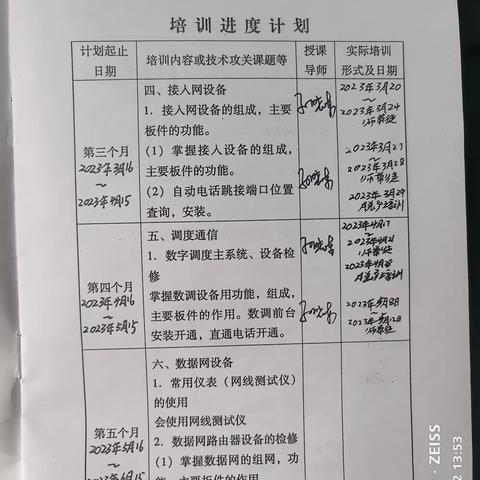 培训进度计划
计划起止
日期
培训内容或技术攻关课题等
授课
导师
实际培训
形式及日期
第三个月
2023年3月16
～
2023年4月15
四、接入网设备
1. 接入网设备的组成，主要
板件的功能。
(1) 掌握接入设备的组成，
主要板件的功能。
(2) 自动电话跳接端口位置
查询，安装。
2023年3月20
～
2023年3月24
师带徒
2023年3月27
～
2023年3月28
师带徒
2023年3月29
第四个月
2023年4月16
～
2023年5月15
五、调度通信
1. 数字调度主系统、设备检
修
掌握数调设备用功能，组成，
主要板件的作用。数调前台
安装开通，直通电话开通。
2023年4月17
～
2023年4月21
师带徒
2023年4月28
2023年5月8日
～
2023年5月12日
师带徒
第五个月
2023年5月16
～
2023年6月15
六、数据网设备
1. 常用仪表（网线测试仪）
的使用
会使用网线测试仪
2. 数据网路由器设备的检修
(1) 掌握数据网的组网，功
能，主要板件的作用
ZEISS
13:53